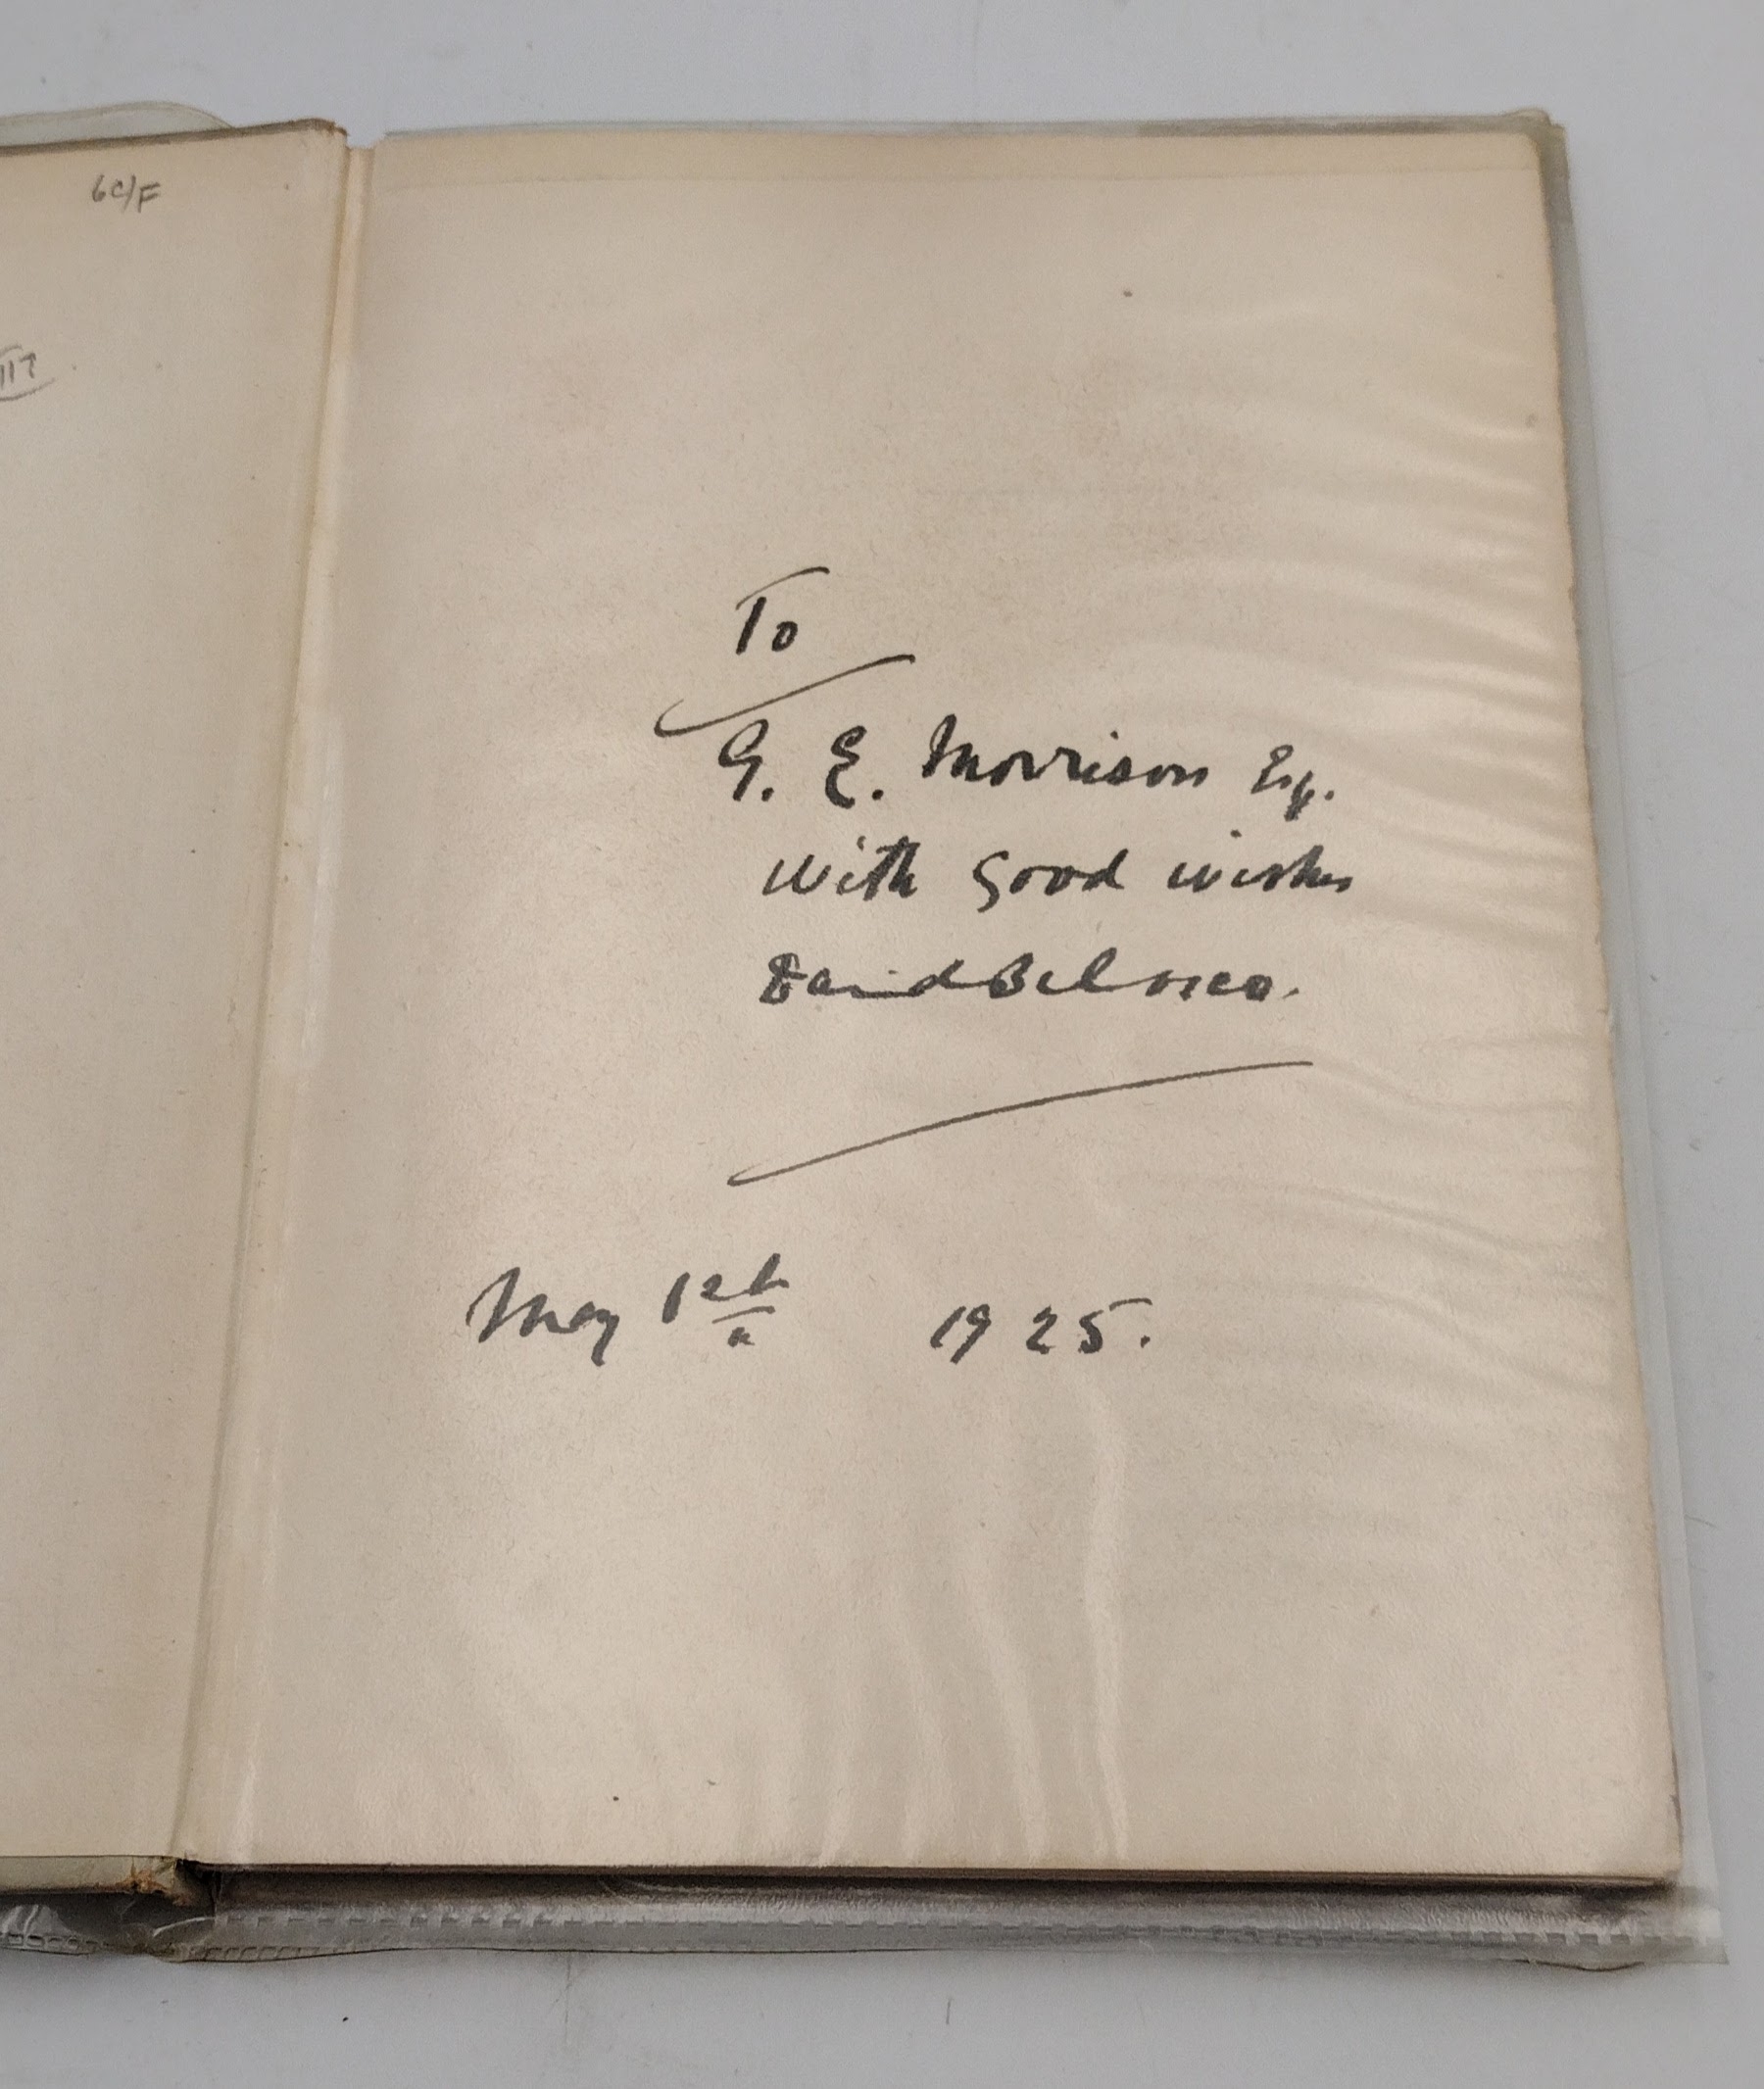 6C/F
To
G. E. Morrison Esq.
With Good wishes
David Belasco.
May 1st 1925.